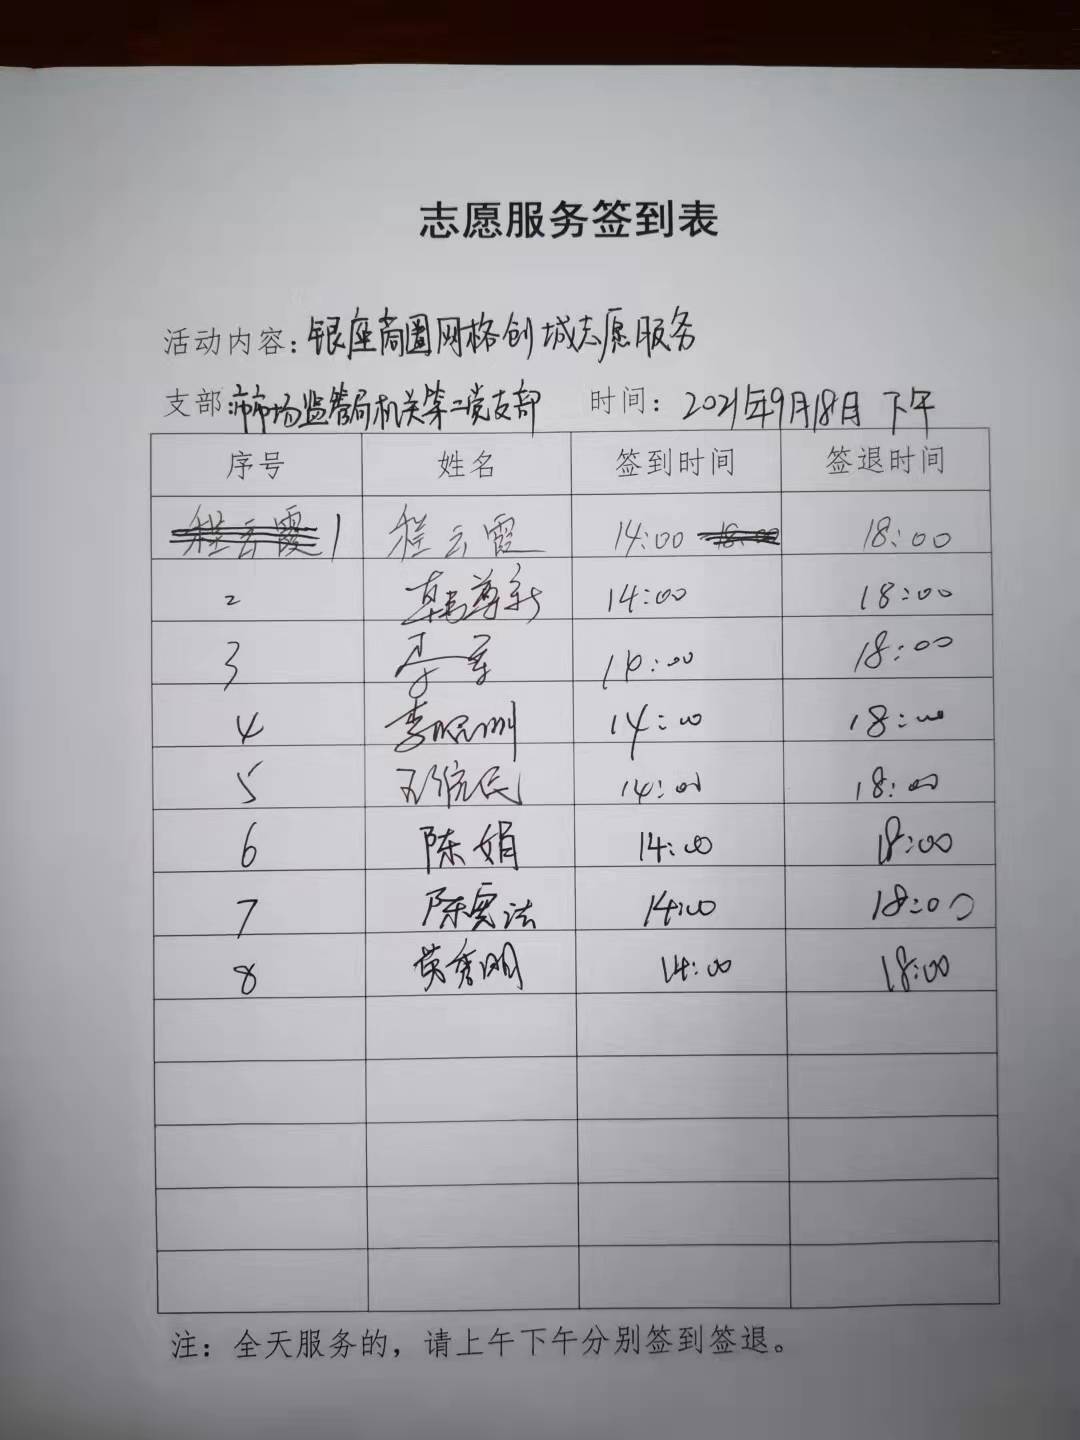 志愿服务签到表
活动内容：银座商圈网格创城志愿服务
支部：市市场监管局机关第二党支部 时间：2021年9月18日 下午
序号 姓名 签到时间 签退时间
程云霞 1 程云霞 14:00 18:00 18:00
2 韩尊新 14:00 18:00
3 14:00 18:00
4 14:00 18:00
5 14:00 18:00
6 陈娟 14:00 18:00
7 14:00 18:00
8 黄秀明 14:00 18:00
注：全天服务的，请上午下午分别签到签退。